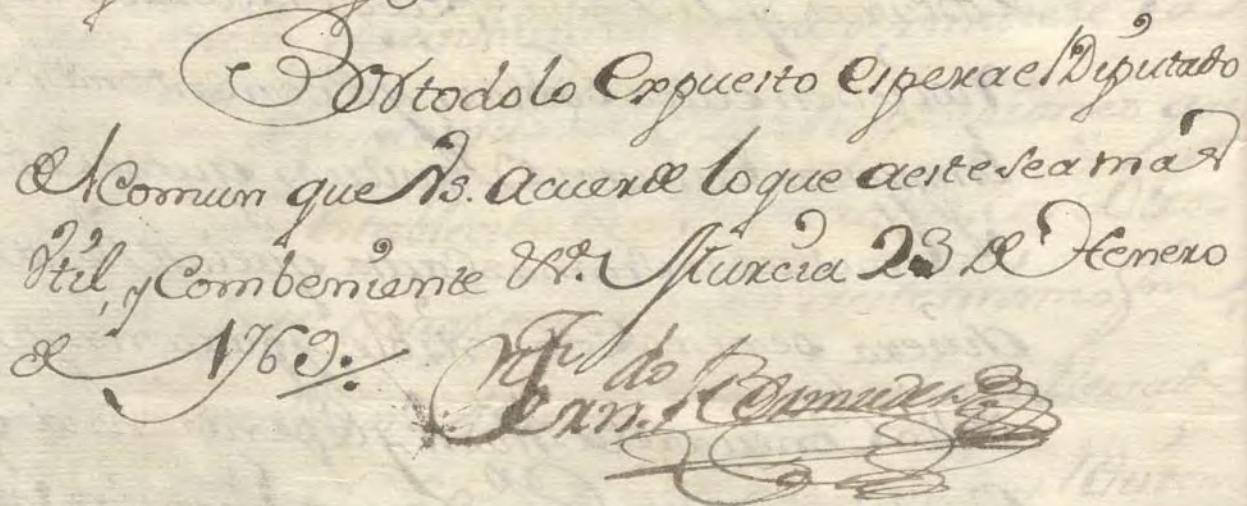 En todo lo Expuesto Espera el Diputado
del Comun que VS. Acuerde lo que a este sea mas
Vtil, y Combeniente &ª. Murcia 23 de Henero
de 1769.
Fernando Bermudez